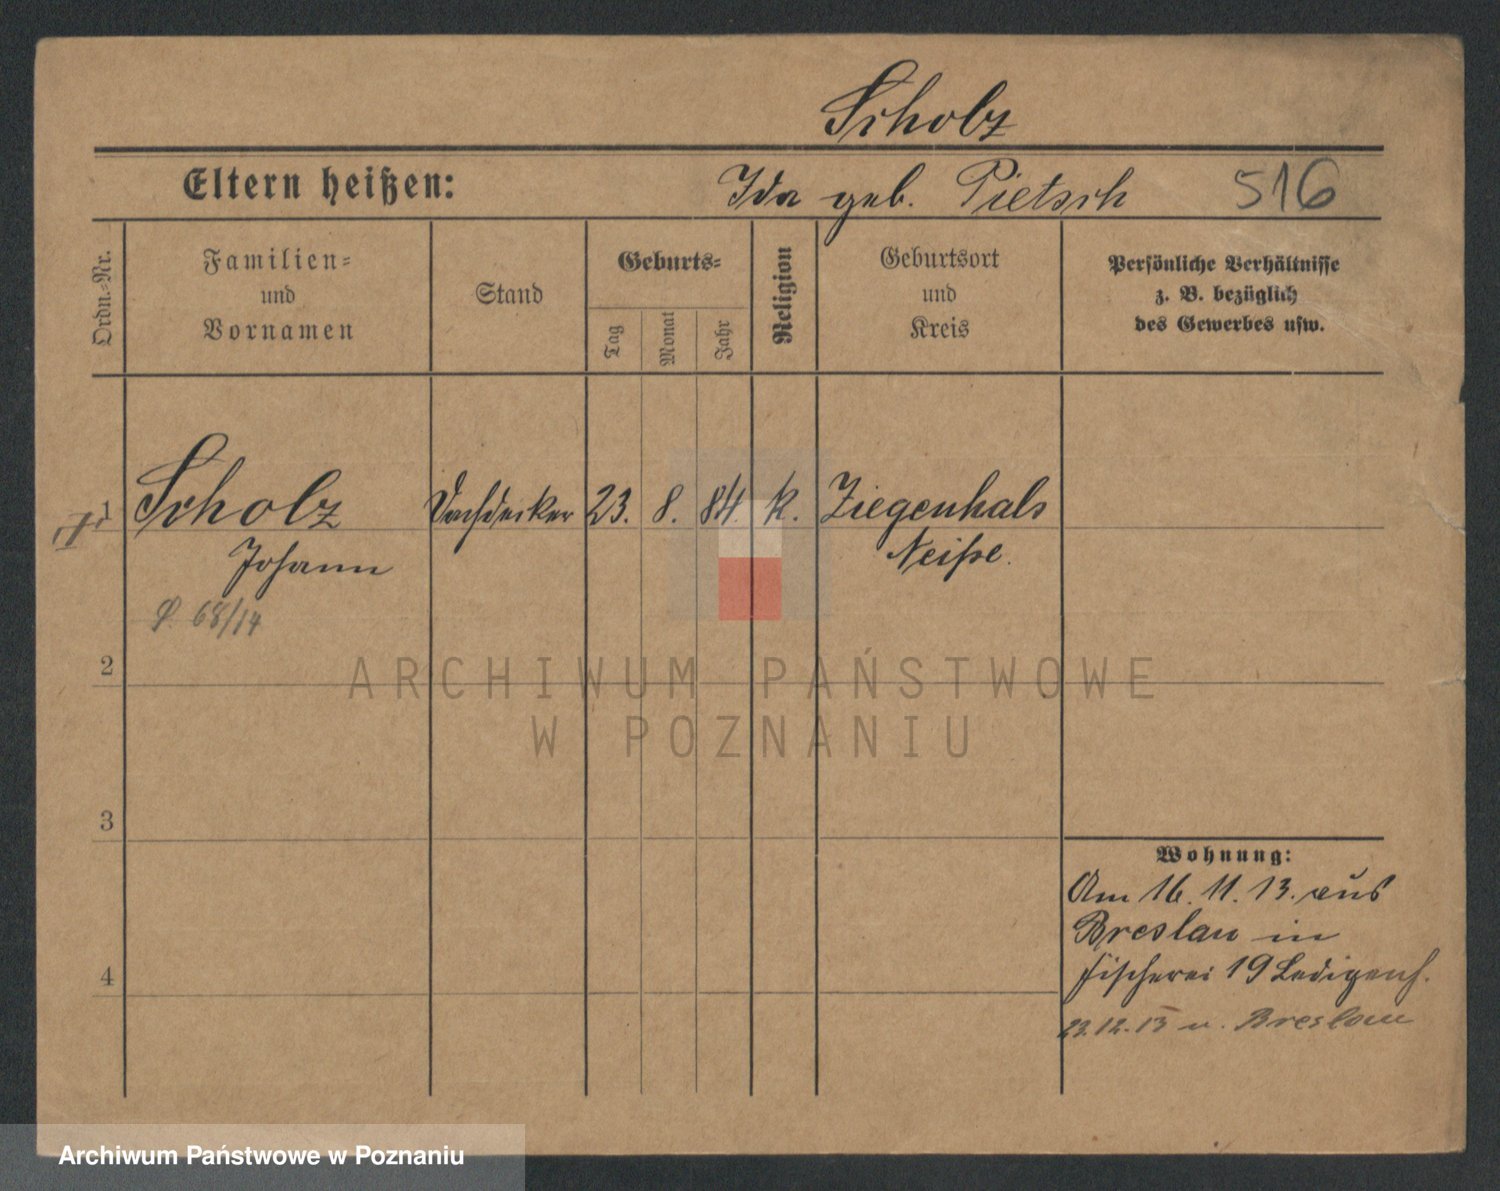 Scholz
Eltern heißen:
Ida geb. Pietsch
516
Ordn.-Nr.
Familien-
und
Vornamen
Stand
Geburts-
Tag
Monat
Jahr
Religion
Geburtsort
und
Kreis
Persönliche Verhältnisse
z. B. bezüglich
des Gewerbes usw.
1 Scholz Dachdecker 23. 8. 84. k. Ziegenhals
Johann Neiße.
68/14
2
ARCHIWUM PAŃSTWOWE
W POZNANIU
3
Wohnung:
Am 16. 11. 13. aus
Breslau in
Fischerei 19 Ledigenh.
4
23.12.13 n. Breslau
Archiwum Państwowe w Poznaniu